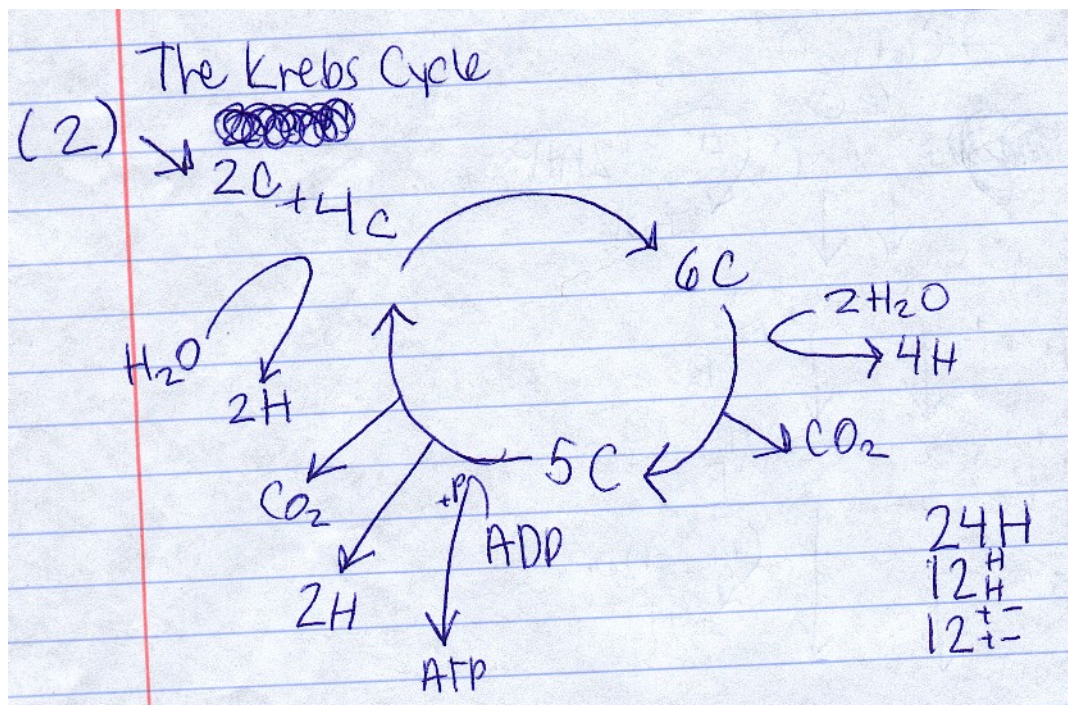 The Krebs Cycle
(2)
2C +4C
6C
2H₂O
4H
H₂O
2H
CO₂
5C
CO₂
+P
ADP
2H
ATP
24H
12 H H
12 + - + -